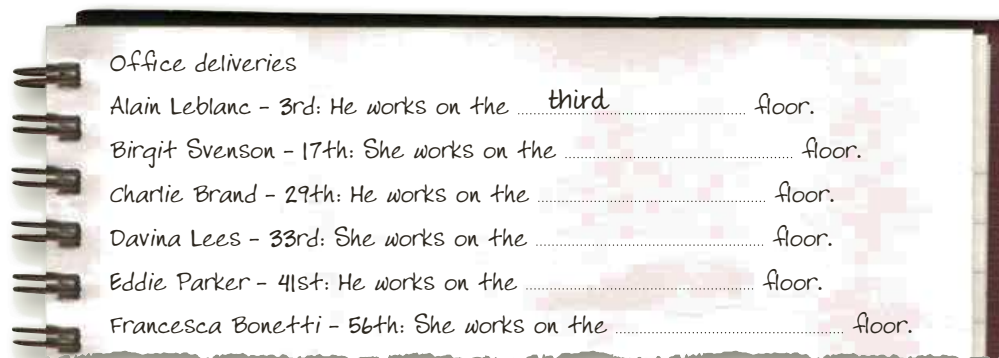 Office deliveries
Alain Leblanc - 3rd: He works on the third floor.
Birgit Svenson - 17th: She works on the floor.
Charlie Brand - 29th: He works on the floor.
Davina Lees - 33rd: She works on the floor.
Eddie Parker - 41st: He works on the floor.
Francesca Bonetti - 56th: She works on the floor.